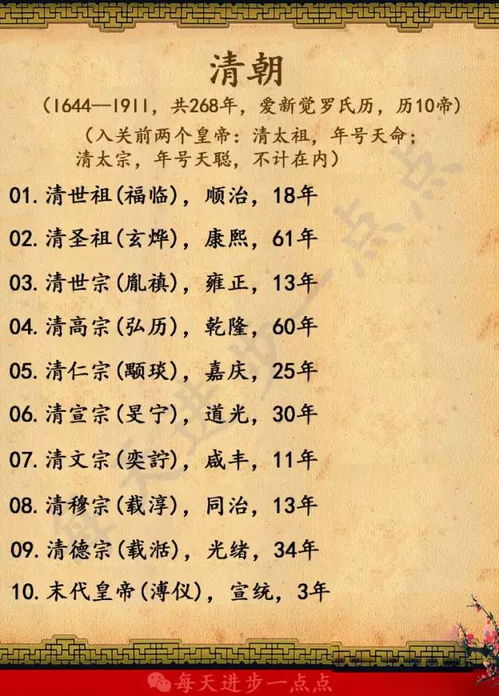 清朝
(1644—1911, 共268年, 爱新觉罗氏历, 历10帝)
(入关前两个皇帝: 清太祖, 年号天命;
清太宗, 年号天聪, 不计在内)
01. 清世祖(福临), 顺治, 18年
02. 清圣祖(玄烨), 康熙, 61年
03. 清世宗(胤禛), 雍正, 13年
04. 清高宗(弘历), 乾隆, 60年
05. 清仁宗(颙琰), 嘉庆, 25年
06. 清宣宗(旻宁), 道光, 30年
07. 清文宗(奕詝), 咸丰, 11年
08. 清穆宗(载淳), 同治, 13年
09. 清德宗(载湉), 光绪, 34年
10. 末代皇帝(溥仪), 宣统, 3年
每天进步一点点
每天进步一点点